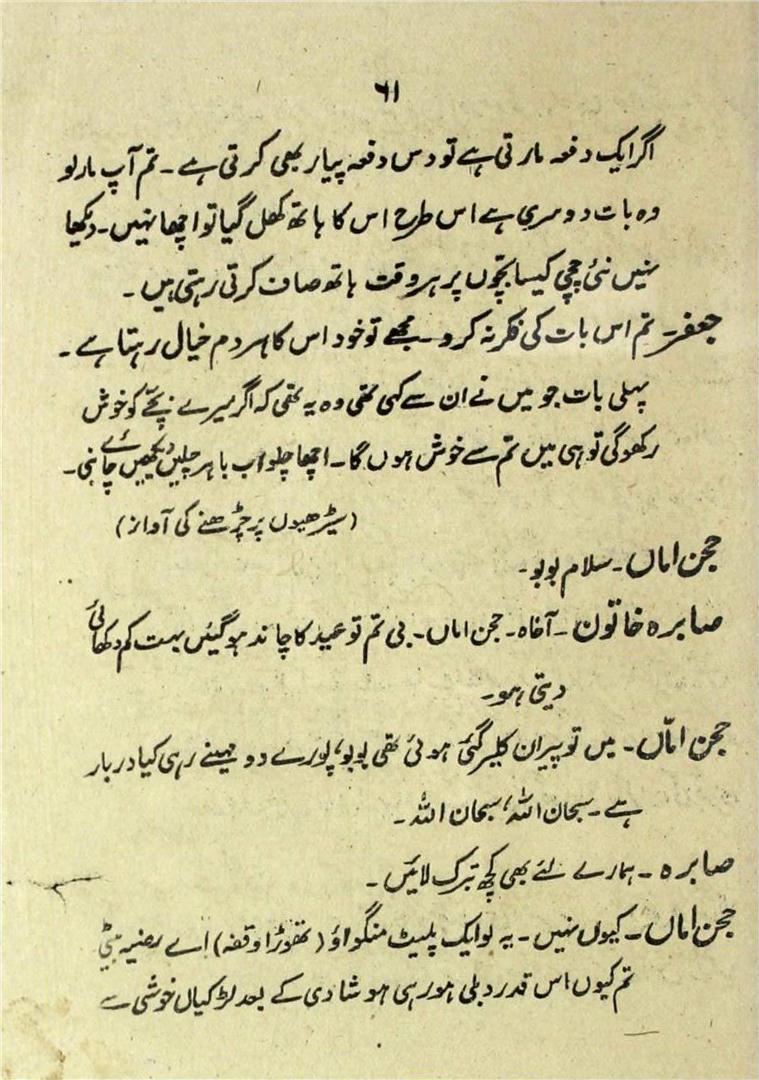 ۶۱
اگر ایک دفعہ مارتی ہے تو دس دفعہ پیار بھی کرتی ہے۔ تم آپ مار لو
وہ بات دوسری ہے اس طرح اس کا ہاتھ کھل گیا تو اچھا نہیں۔ دیکھا
نہیں نئی چچی کیسا بچّوں پر ہر وقت ہاتھ صاف کرتی رہتی ہیں۔
جعفر۔ تم اس بات کی فکر نہ کرو۔ مجھے تو خود اس کا ہر دم خیال رہتا ہے۔
پہلی بات جو میں نے ان سے کہی تھی وہ یہ تھی کہ اگر میرے بچّے کو خوش
رکھو گی تو ہی میں تم سے خوش ہوں گا۔ اچھا چلو اب باہر چلیں دیکھیں چاہئی۔
(سیڑھیوں پر چڑھنے کی آواز)
حجن اماں۔ سلام بوبو۔
صابرہ خاتون۔ آخاہ۔ حجن اماں۔ بی تم تو عید کا چاند ہو گئیں بہت کم دکھائی
دیتی ہو۔
حجن امّاں۔ میں تو پیران کلیر گئی ہوئی تھی بوبو، پورے دو مہینے رہی کیا دربار
ہے۔ سبحان اللہ، سبحان اللہ۔
صابرہ۔ ہمارے لئے بھی کچھ تبرک لائیں۔
حجن اماں۔ کیوں نہیں۔ یہ لو ایک پلیٹ منگواؤ (تھوڑا وقفہ) اے رضیہ بیٹی
تم کیوں اس قدر دبلی ہو رہی ہو شادی کے بعد لڑکیاں خوشی سے